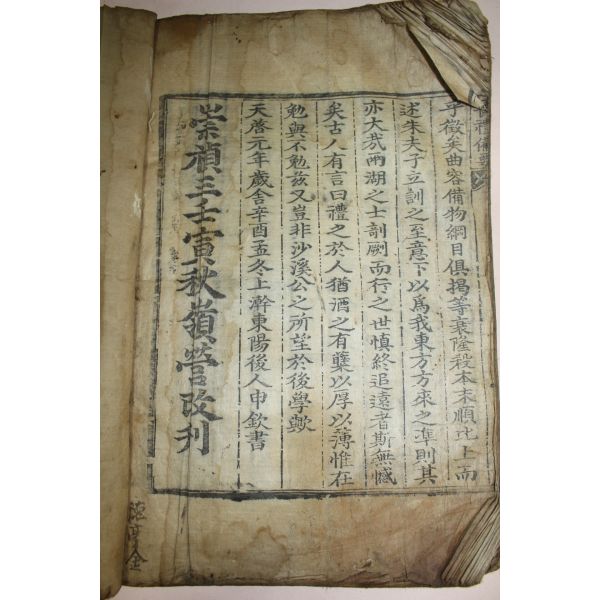 喪禮備要
乎徵矣曲容備物綱目俱揭等衰隆殺本末順比上而
述朱夫子立訓之至意下以爲我東方方來之準則其
亦大哉兩湖之士剞劂而行之世愼終追遠者斯無憾
矣古人有言曰禮之於人猶酒之有糵以厚以薄惟在
勉與不勉玆又豈非沙溪公之所望於後學歟
天啓元年歲舍辛酉孟冬上澣東陽後人申欽書
崇禎三壬寅秋嶺營改刊